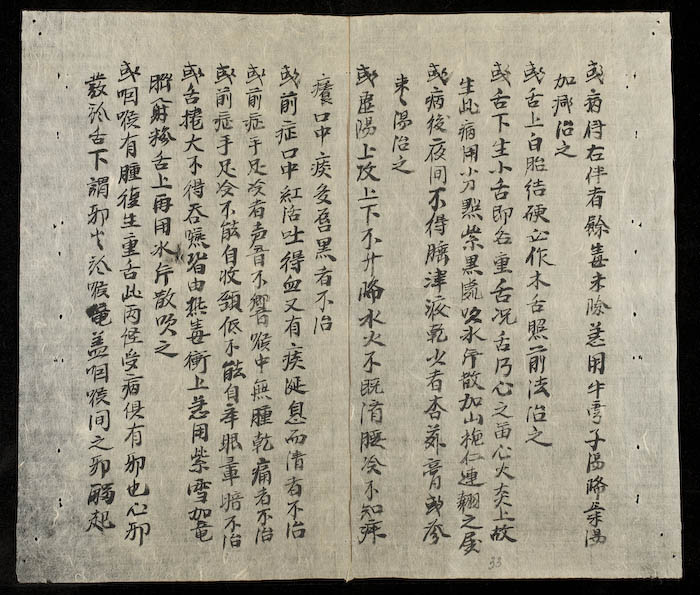 或病何右伴者餘毒未除急用牛旁子湯晞㬎湯
加减治之
或舌上白胎结硬必作木舌照前法治之
或舌下生小舌即名重舌况舌乃心之苗心火炎上故
生此病用小刀點紫黑處吹水片散加山梔仁連翹之屬
或病後夜间不得睡津液乾少者杏蘇膏或参
枣湯治之
或虚陽上攻上下不升降水火不既濟腰冷不知痳
癢口中痰多唇黑者不治
或前症口中紅活吐得血又有痰涎息而清者不治
或前症手足冷者声音不響喉中無腫乾痛者不治
或前症手足冷不能自收頭低不能自牵眼暈暗不治
或舌捲大不得吞嚥皆由熱毒衝上急用紫雪加竜
臍射糝舌上再用水片散吹之
或咽喉有腫復生重舌此两怪受病俱有邪也心邪
發於舌下謂邪火於喉俺盖咽喉间之邪觸起
33